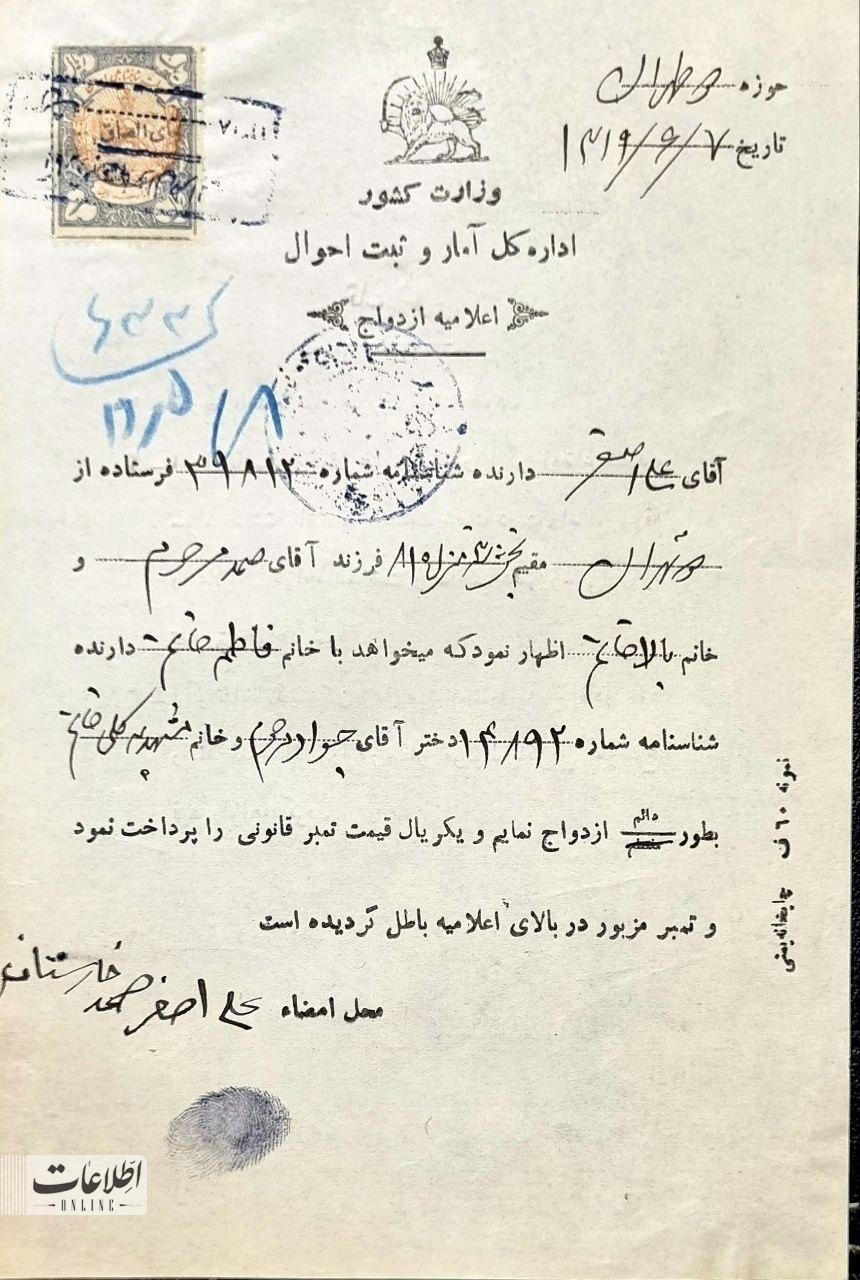 حوزه ۵ طهران
تاریخ ۱۳۱۹/۹/۷
وزارت کشور
اداره کل آمار و ثبت احوال
اعلامیه ازدواج
آقای علی اصغر دارنده شناسنامه شماره ۳۹۸۱۲ فرستاده از
۵ تهران مقیم بخش ۳ فرزند آقای صمد مرحوم و
خانم بالا خانم اظهار نمود که میخواهد با خانم فاطمه خانم دارنده
شناسنامه شماره ۱۴۸۹۲ دختر آقای جواد مرحوم و خانم مشهدیه گلی خانم
بطور دائم منقطع ازدواج نمایم و یکریال قیمت تمبر قانونی را پرداخت نمود
و تمبر مزبور در بالای اعلامیه باطل گردیده است
محل امضاء علی اصغر صمد
نمونه ۶۰ ف چاپخانه بهمنی
اطلاعات
ONLINE